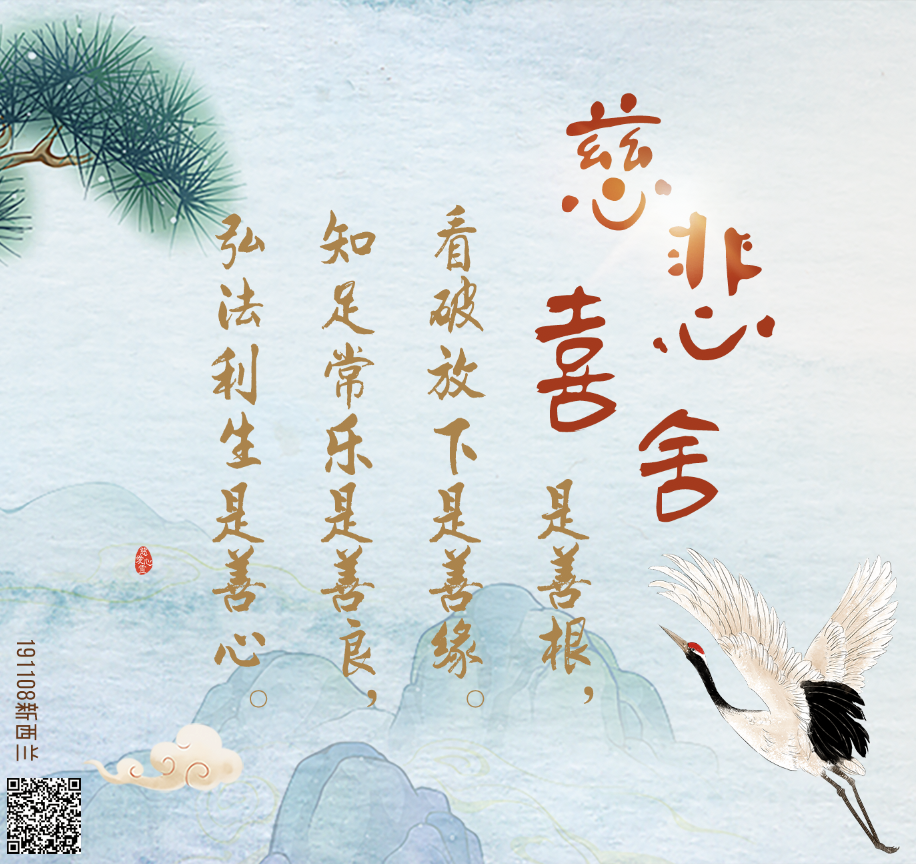 慈悲喜舍
是善根，
看破放下是善缘。
知足常乐是善良，
弘法利生是善心。
191108新西兰